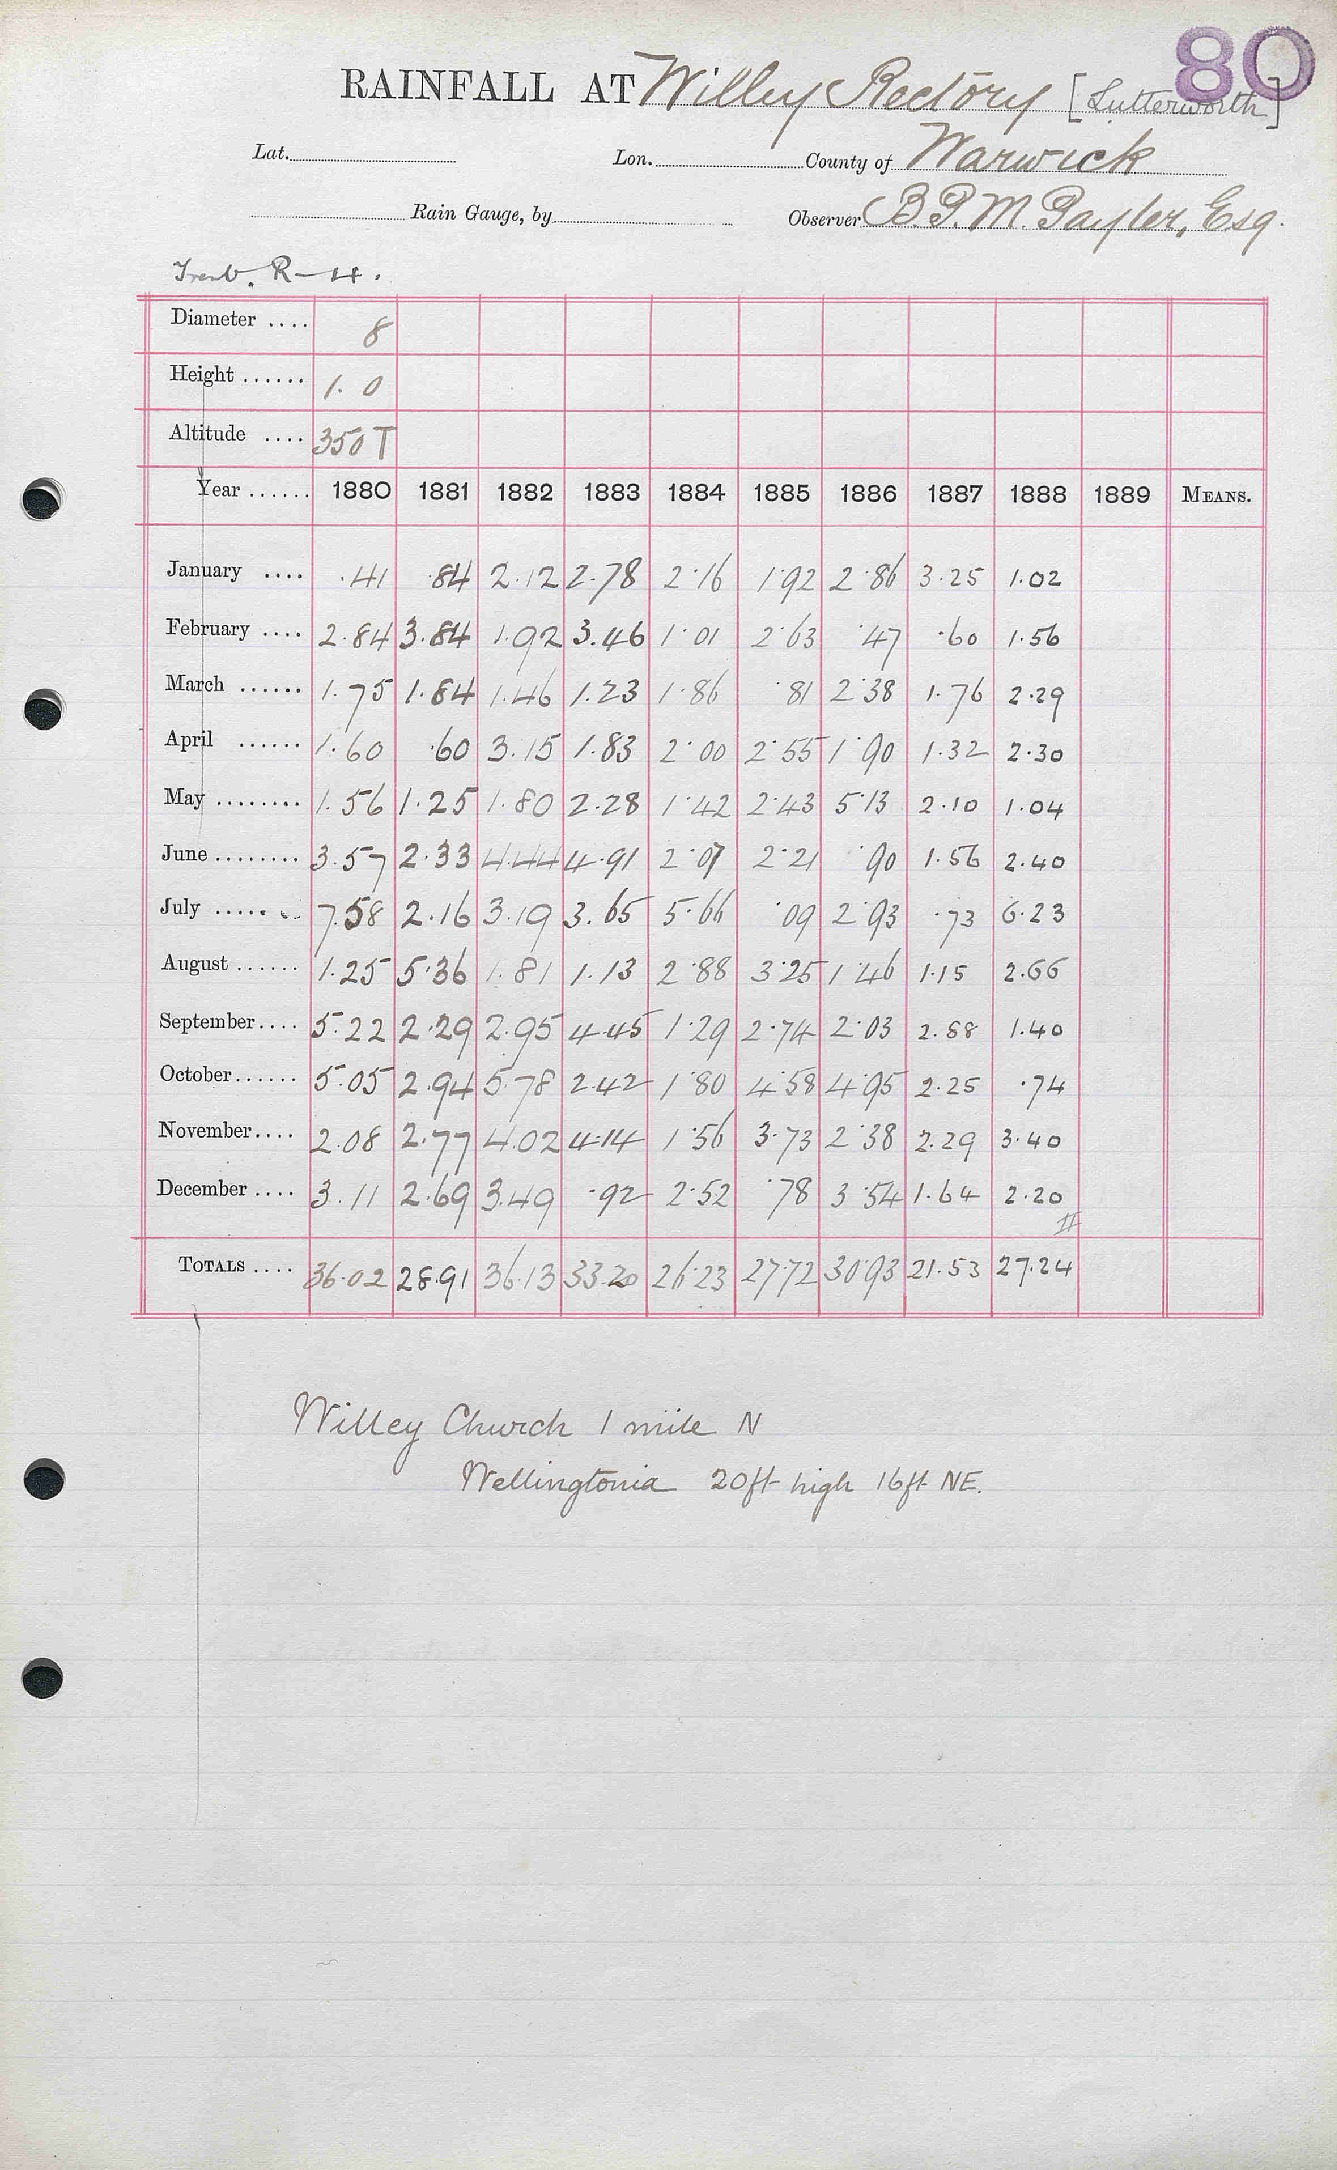 80
RAINFALL AT Willey Rectory [Lutterworth]
Lat. Lon. County of Warwick
Rain Gauge, by Observer B.P.M. Payler, Esq.
R-14.
Diameter .... 8
Height ...... 1. 0
Altitude .... 350 T
Year ...... 1880 1881 1882 1883 1884 1885 1886 1887 1888 1889 MEANS.
January .... .41 .84 2.12 2.78 2.16 1.92 2.86 3.25 1.02
February .... 2.84 3.84 1.92 3.46 1.01 2.63 .47 .60 1.56
March ...... 1.75 1.84 1.46 1.23 1.86 .81 2.38 1.76 2.29
April ...... 1.60 .60 3.15 1.83 2.00 2.55 1.90 1.32 2.30
May ........ 1.56 1.25 1.80 2.28 1.42 2.43 5.13 2.10 1.04
June ........ 3.57 2.33 4.44 4.91 2.07 2.21 .90 1.56 2.40
July ........ 7.58 2.16 3.19 3.65 5.66 .09 2.93 .73 6.23
August ...... 1.25 5.36 1.81 1.13 2.88 3.25 1.46 1.15 2.66
September.... 5.22 2.29 2.95 4.45 1.29 2.74 2.03 2.88 1.40
October...... 5.05 2.94 5.78 2.42 1.80 4.58 4.95 2.25 .74
November.... 2.08 2.77 4.02 4.14 1.56 3.73 2.38 2.29 3.40
December .... 3.11 2.69 3.49 .92 2.52 .78 3.54 1.64 2.20
TOTALS .... 36.02 28.91 36.13 33.20 26.23 27.72 30.93 21.53 27.24
Willey Church 1 mile N
Wellingtonia 20ft high 16ft NE.